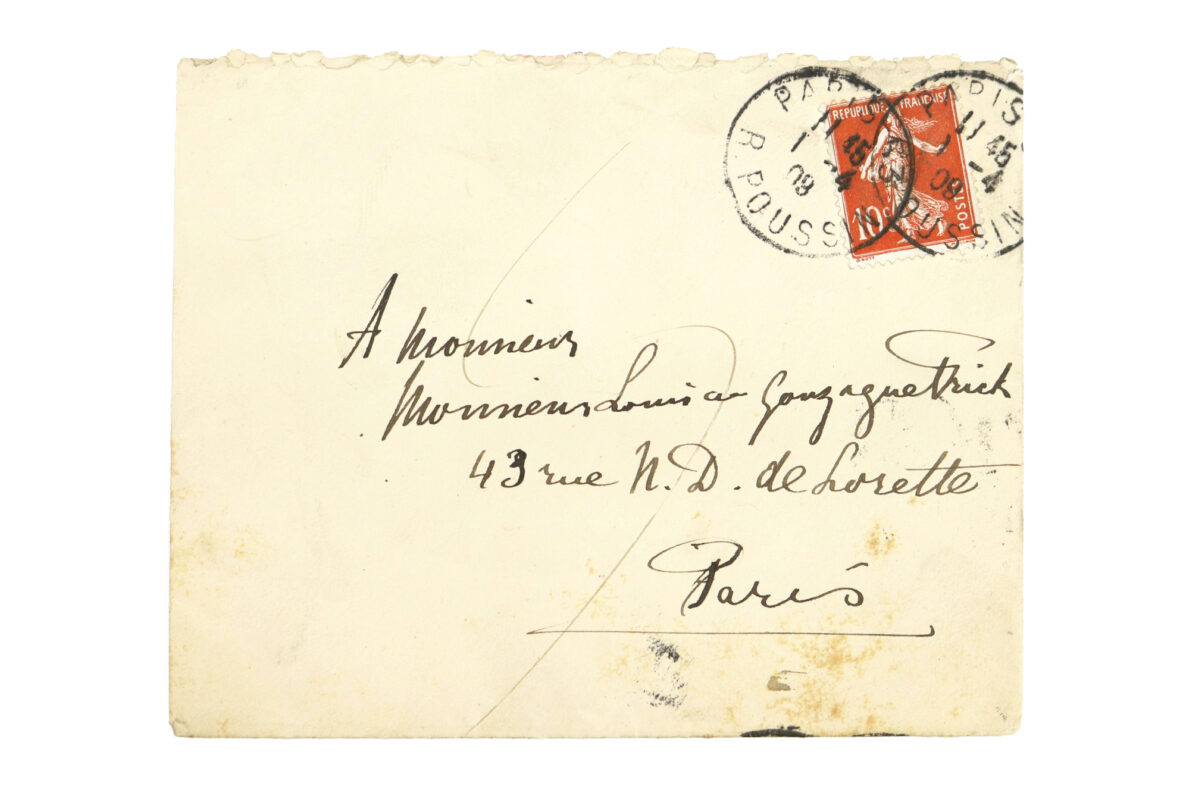 PARIS 43
11 45
1 -4
09
R. POUSSIN
REPUBLIQUE FRANCAISE
10c
POSTES
PARIS
11 45
1 -4
09
POUSSIN
A Monsieur
Monsieur Louis de Gonzague Frick
43 rue N. D. de Lorette
Paris